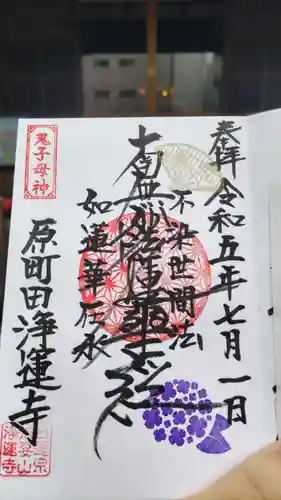 奉拝 令和五年七月一日
不染世間法
南無妙法蓮華経
如蓮華在水
鬼子母神
原町田浄運寺
浄運寺